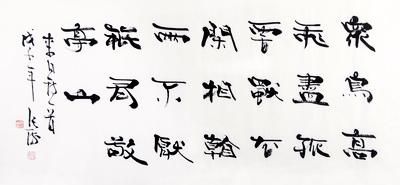 衆鳥高
飛盡孤
雲獨去
閑相看
兩不厭
祗有敬
亭山
李白詩一首
戊子年